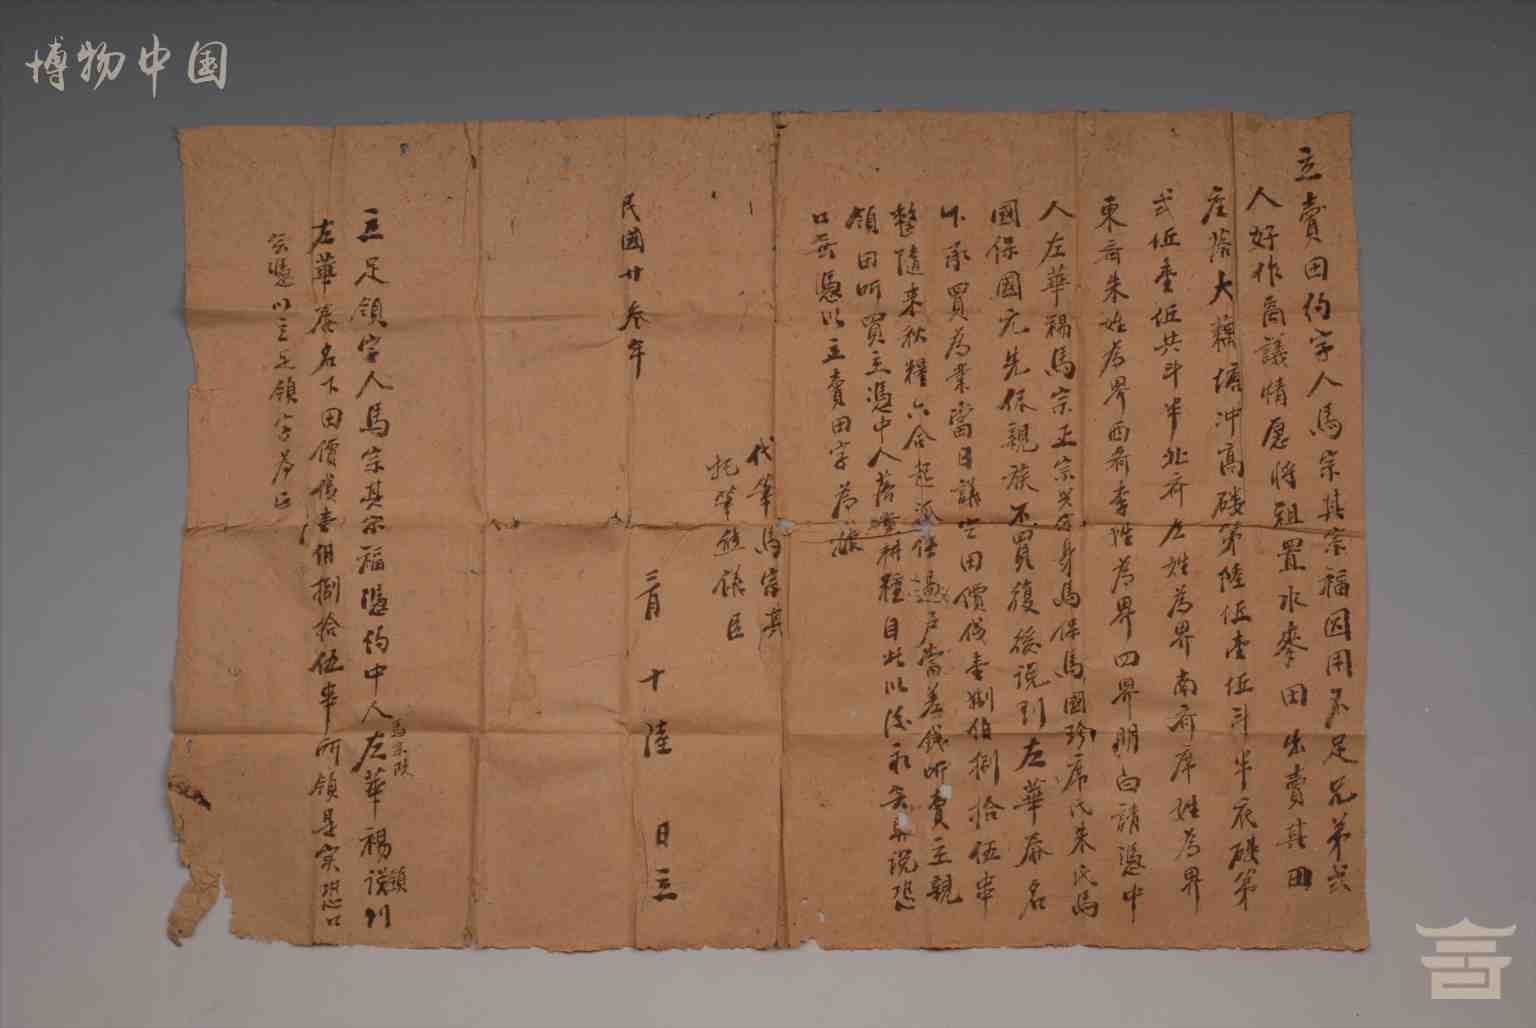 博物中国
立賣田約字人馬宗其宗福因用不足兄弟弍
人好作商議情愿將祖置水麥田出賣其田
座落大藕塘冲高磙第陸伍壹伍斗半底磙第
弍伍壹伍共斗半北齐左姓為界南齐席姓為界
東齐朱姓為界西齐李姓為界四界明白請憑中
人左華禓馬宗正宗興馬保馬國珍席氏朱氏馬
國保國元先保親族不買復後说到左華泰名
下承買為業當日議定田價錢壹捌伯捌拾伍串
整隨来秋糧六合起派任過戶當差錢听賣主親
領田听買主憑中人落業耕種自此以後永無异说恐
口無憑以立賣田字為據
代筆馬宗其
托筆 臣
民國廿叁年 三月 十陸 日立
立足領字人馬宗其宗福憑約中人左華禓说到
馬宗 領
左華泰名下田價錢壹伯捌拾伍串所領是实恐口
無憑以立足領字存正